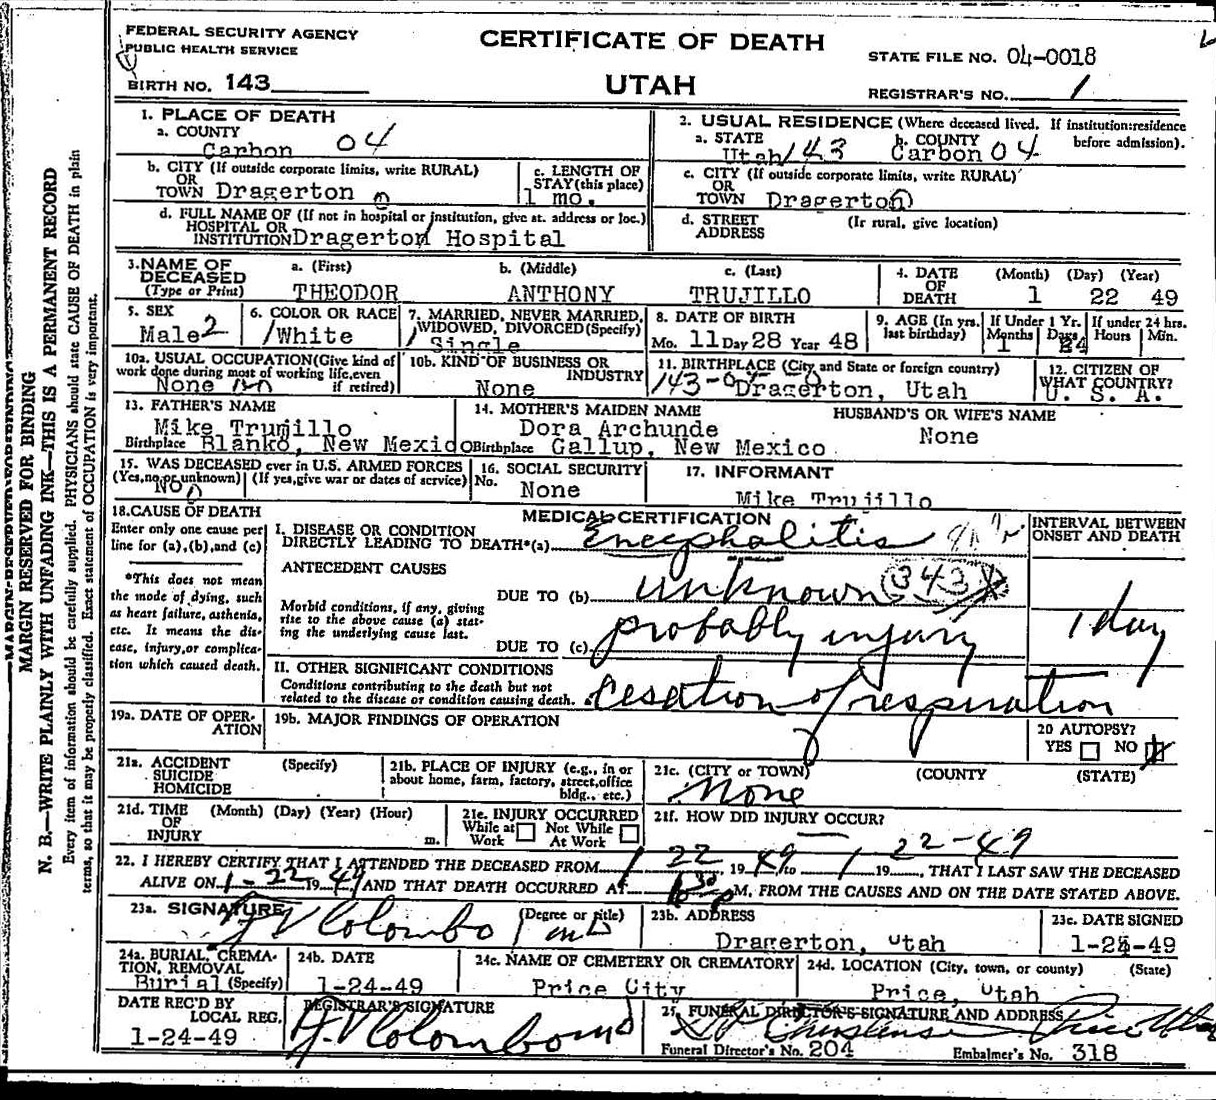 FEDERAL SECURITY AGENCY
PUBLIC HEALTH SERVICE
CERTIFICATE OF DEATH
STATE FILE NO. 04-0018
BIRTH NO. 143
UTAH
REGISTRAR'S NO. 1
1. PLACE OF DEATH
a. COUNTY
Carbon 04
2. USUAL RESIDENCE (Where deceased lived. If institution:residence before admission).
a. STATE b. COUNTY
Utah 143 Carbon 04
b. CITY (If outside corporate limits, write RURAL)
OR
TOWN Dragerton
c. LENGTH OF STAY (this place)
1 mo.
c. CITY (If outside corporate limits, write RURAL)
OR
TOWN Dragerton
d. FULL NAME OF (If not in hospital or institution, give st. address or loc.)
HOSPITAL OR
INSTITUTION Dragerton Hospital
d. STREET ADDRESS (Ir rural, give location)
3. NAME OF DECEASED (Type or Print)
a. (First) b. (Middle) c. (Last)
THEODOR ANTHONY TRUJILLO
4. DATE OF DEATH (Month) (Day) (Year)
1 22 49
5. SEX
Male 2
6. COLOR OR RACE
White
7. MARRIED, NEVER MARRIED, WIDOWED, DIVORCED (Specify)
Single
8. DATE OF BIRTH
Mo. 11 Day 28 Year 48
9. AGE (In yrs. last birthday) If Under 1 Yr. Months Days If under 24 hrs. Hours Min.
1 24
10a. USUAL OCCUPATION (Give kind of work done during most of working life, even if retired)
None
10b. KIND OF BUSINESS OR INDUSTRY
None
11. BIRTHPLACE (City and State or foreign country)
Dragerton, Utah
12. CITIZEN OF WHAT COUNTRY?
U. S. A.
13. FATHER'S NAME
Mike Trujillo
Birthplace Blanko, New Mexico
14. MOTHER'S MAIDEN NAME
Dora Archunde
Birthplace Gallup, New Mexico
HUSBAND'S OR WIFE'S NAME
None
15. WAS DECEASED ever in U.S. ARMED FORCES
(Yes, no, or unknown) (If yes, give war or dates of service)
No
16. SOCIAL SECURITY No.
None
17. INFORMANT
Mike Trujillo
18. CAUSE OF DEATH
Enter only one cause per line for (a), (b), and (c)
*This does not mean the mode of dying, such as heart failure, asthenia, etc. It means the disease, injury, or complication which caused death.
MEDICAL CERTIFICATION
I. DISEASE OR CONDITION
DIRECTLY LEADING TO DEATH*(a) Encephalitis
ANTECEDENT CAUSES
DUE TO (b) unknown 343X
Morbid conditions, if any, giving rise to the above cause (a) stating the underlying cause last.
DUE TO (c) probably injury
II. OTHER SIGNIFICANT CONDITIONS
Conditions contributing to the death but not related to the disease or condition causing death.
Cesation of respiration
INTERVAL BETWEEN ONSET AND DEATH
1 day
19a. DATE OF OPERATION
19b. MAJOR FINDINGS OF OPERATION
20 AUTOPSY?
YES NO
21a. ACCIDENT SUICIDE HOMICIDE (Specify)
21b. PLACE OF INJURY (e.g., in or about home, farm, factory, street, office bldg., etc.)
21c. (CITY or TOWN) (COUNTY) (STATE)
None
21d. TIME OF INJURY (Month) (Day) (Year) (Hour) m.
21e. INJURY OCCURRED
While at Work Not While At Work
21f. HOW DID INJURY OCCUR?
22. I HEREBY CERTIFY THAT I ATTENDED THE DECEASED FROM 1 22 1949 to 1-22-49 19, THAT I LAST SAW THE DECEASED
ALIVE ON 1-22 1949 AND THAT DEATH OCCURRED AT M. FROM THE CAUSES AND ON THE DATE STATED ABOVE.
23a. SIGNATURE (Degree or title)
Colombo MD
23b. ADDRESS
Dragerton, Utah
23c. DATE SIGNED
1-24-49
24a. BURIAL, CREMATION, REMOVAL (Specify)
Burial
24b. DATE
1-24-49
24c. NAME OF CEMETERY OR CREMATORY
Price City
24d. LOCATION (City, town, or county) (State)
Price, Utah
DATE REC'D BY LOCAL REG.
1-24-49
REGISTRAR'S SIGNATURE
Colombo md
25. FUNERAL DIRECTOR'S SIGNATURE AND ADDRESS
Price Utah
Funeral Director's No. 204 Embalmer's No. 318
MARGIN RESERVED FOR BINDING
N. B.—WRITE PLAINLY WITH UNFADING INK—THIS IS A PERMANENT RECORD
Every item of information should be carefully supplied. PHYSICIANS should state CAUSE OF DEATH in plain
terms, so that it may be properly classified. Exact statement of OCCUPATION is very important.